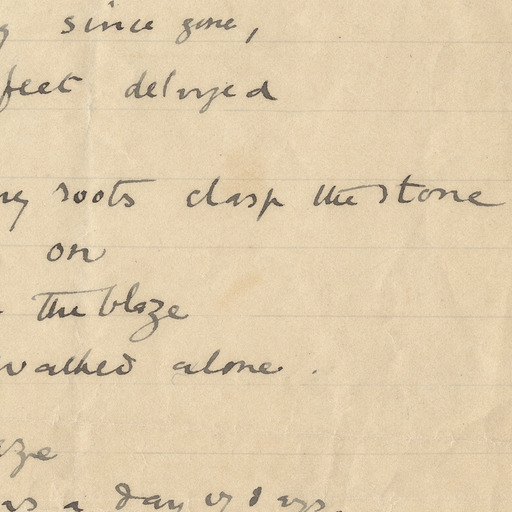 since gone,
feet delayed
roots clasp the stone
on
the blaze
walked alone.
a day of days.